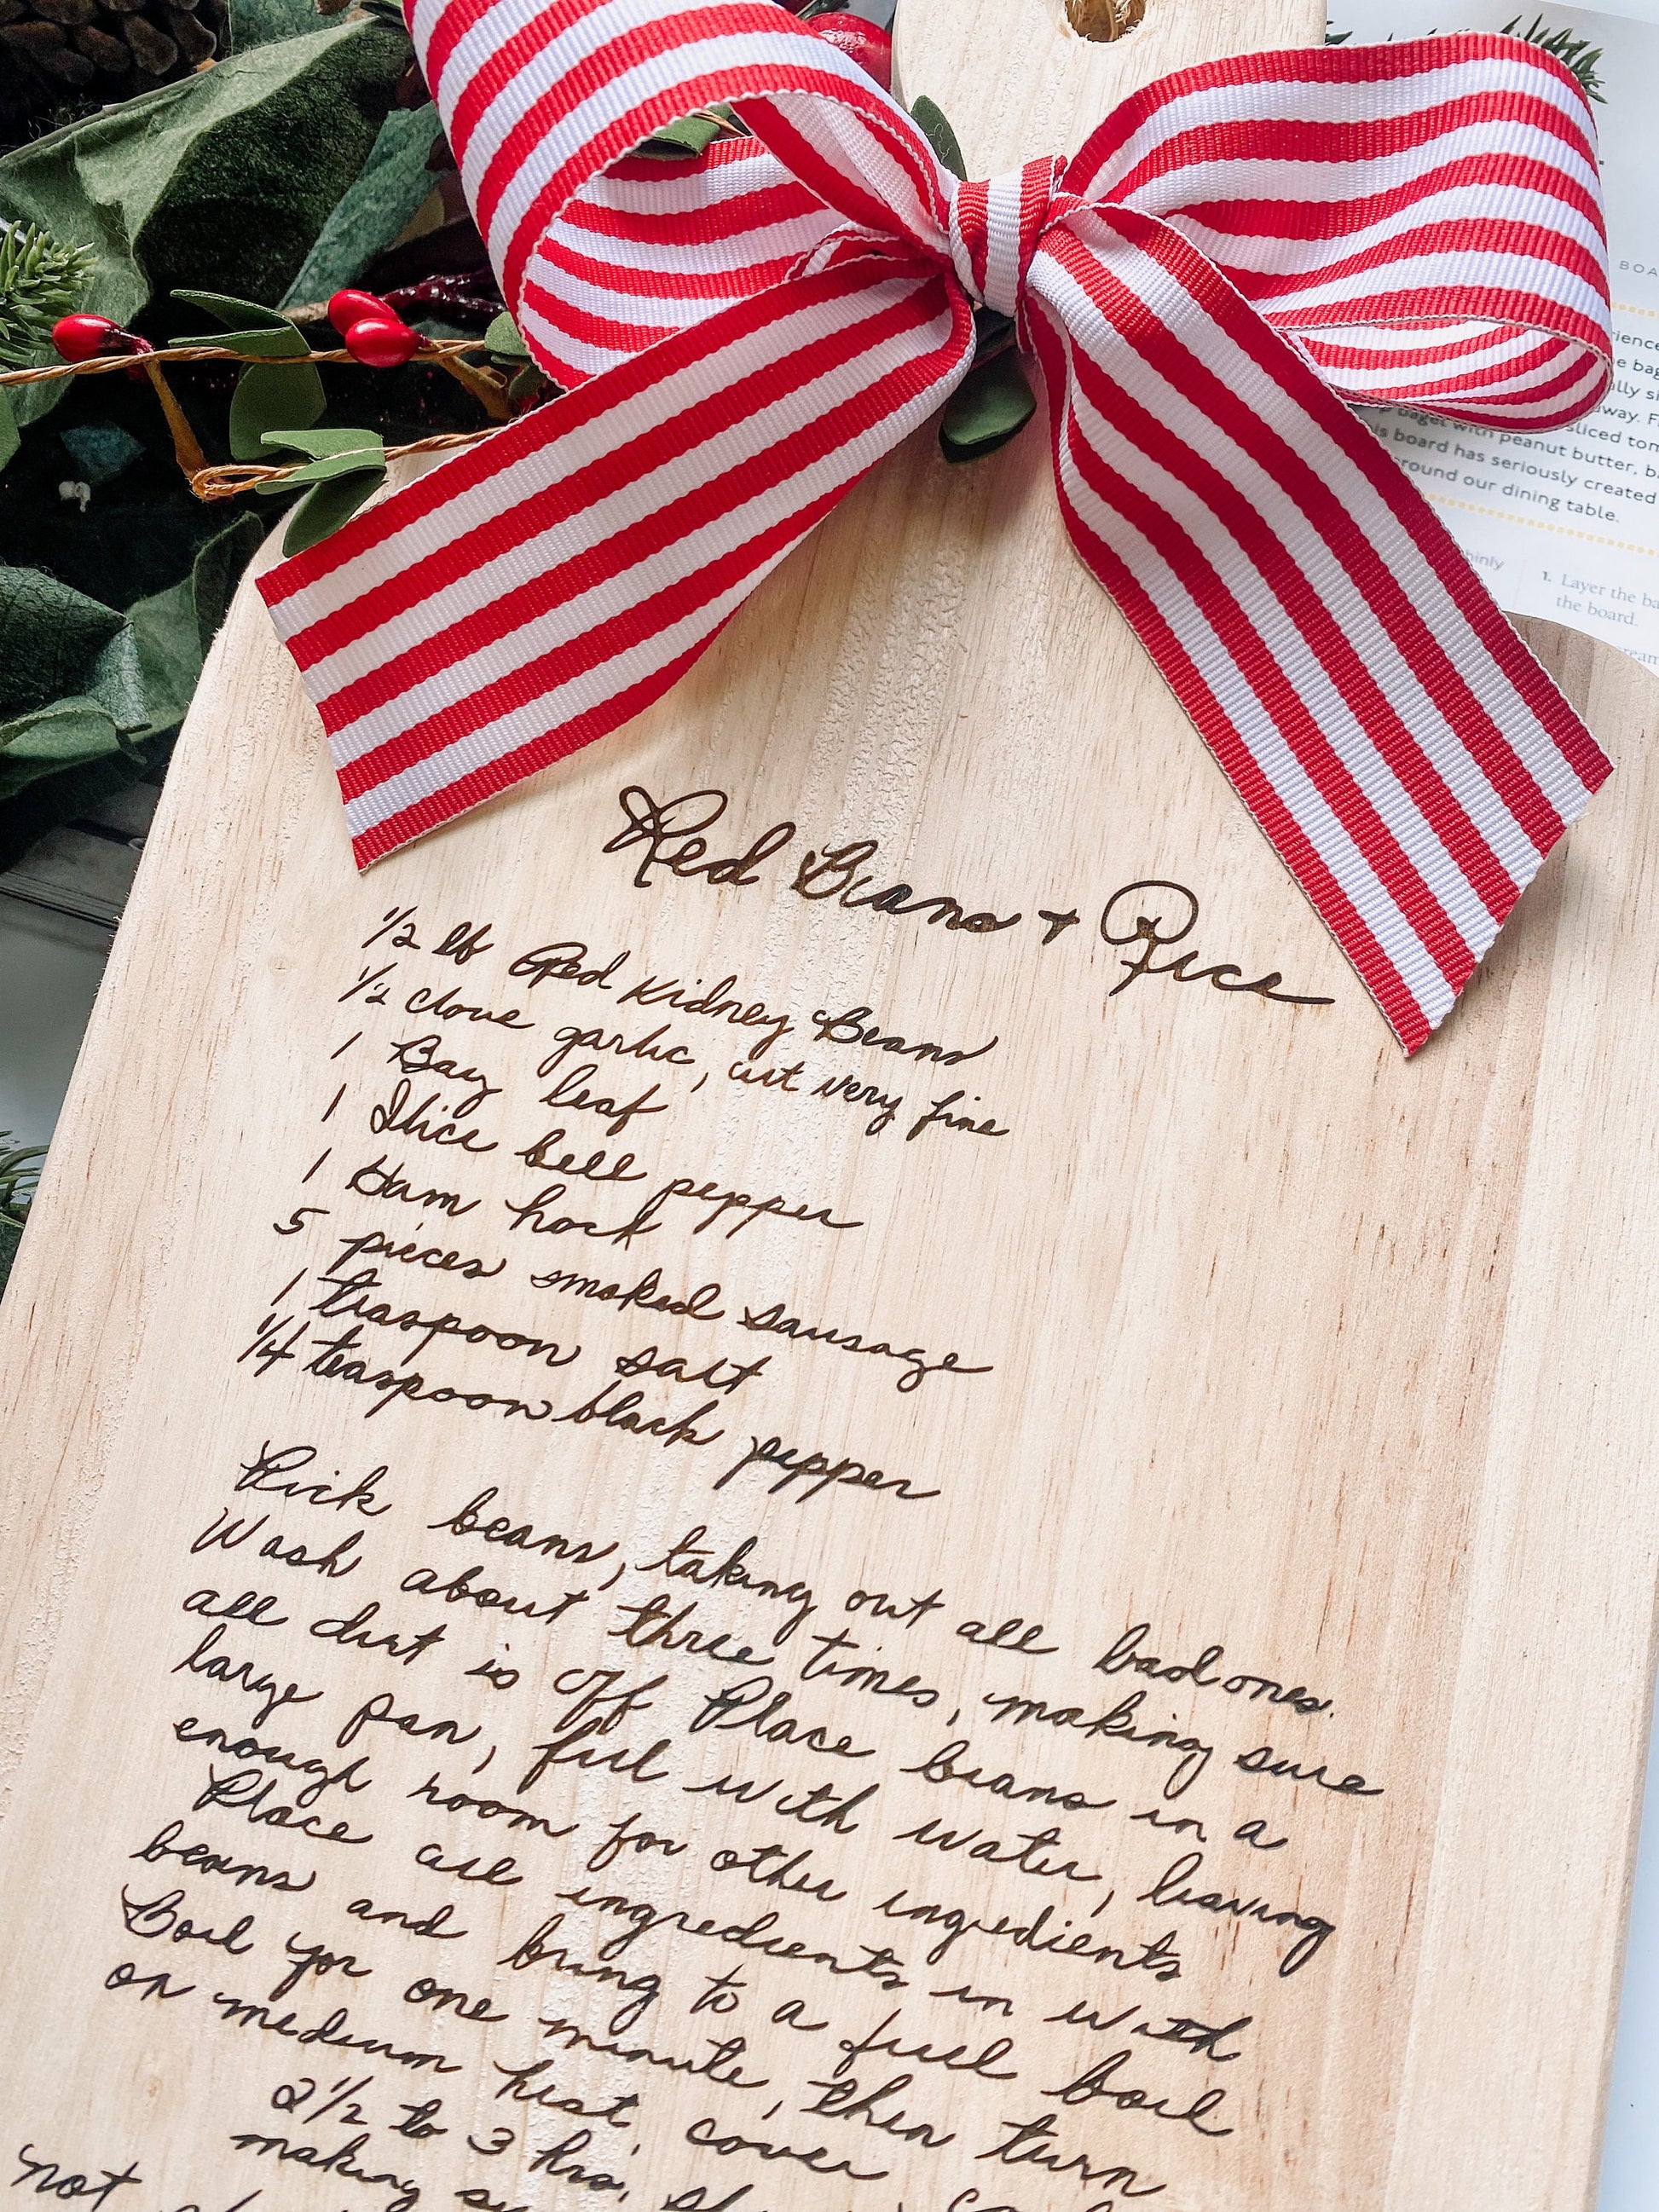 BOA
rience
e bag
ally si
away. F
sliced tom
baget with peanut butter, b
is board has seriously created
round our dining table.
hinly
1. Layer the ba
the board.
ream
Red Beans + Rice
1/2 lb Red Kidney Beans
1/2 clove garlic, cut very fine
1 Bay leaf
1 Slice bell pepper
1 Ham hock
5 pieces smoked sausage
1 teaspoon salt
1/4 teaspoon black pepper
Pick beans, taking out all bad ones.
Wash about three times, making sure
all dirt is off Place beans in a
large pan, fill with water, leaving
enough room for other ingredients
Place all ingredients in with
beans and bring to a full boil
Boil for one minute, then turn
on medium heat, cover
2 1/2 to 3 hrs,
making
not